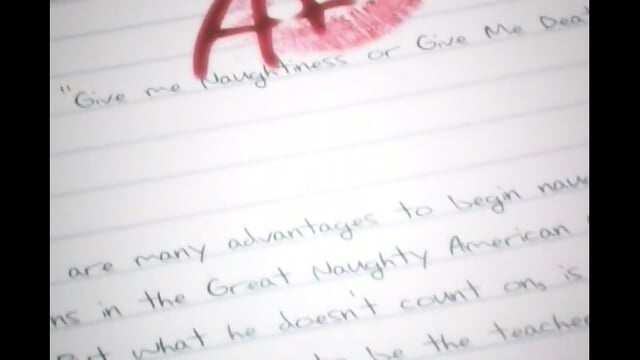 A+
"Give me Naughtiness or Give Me
are many advantages to begin
in the Great Naughty American
But what he doesn't count on, is
be the